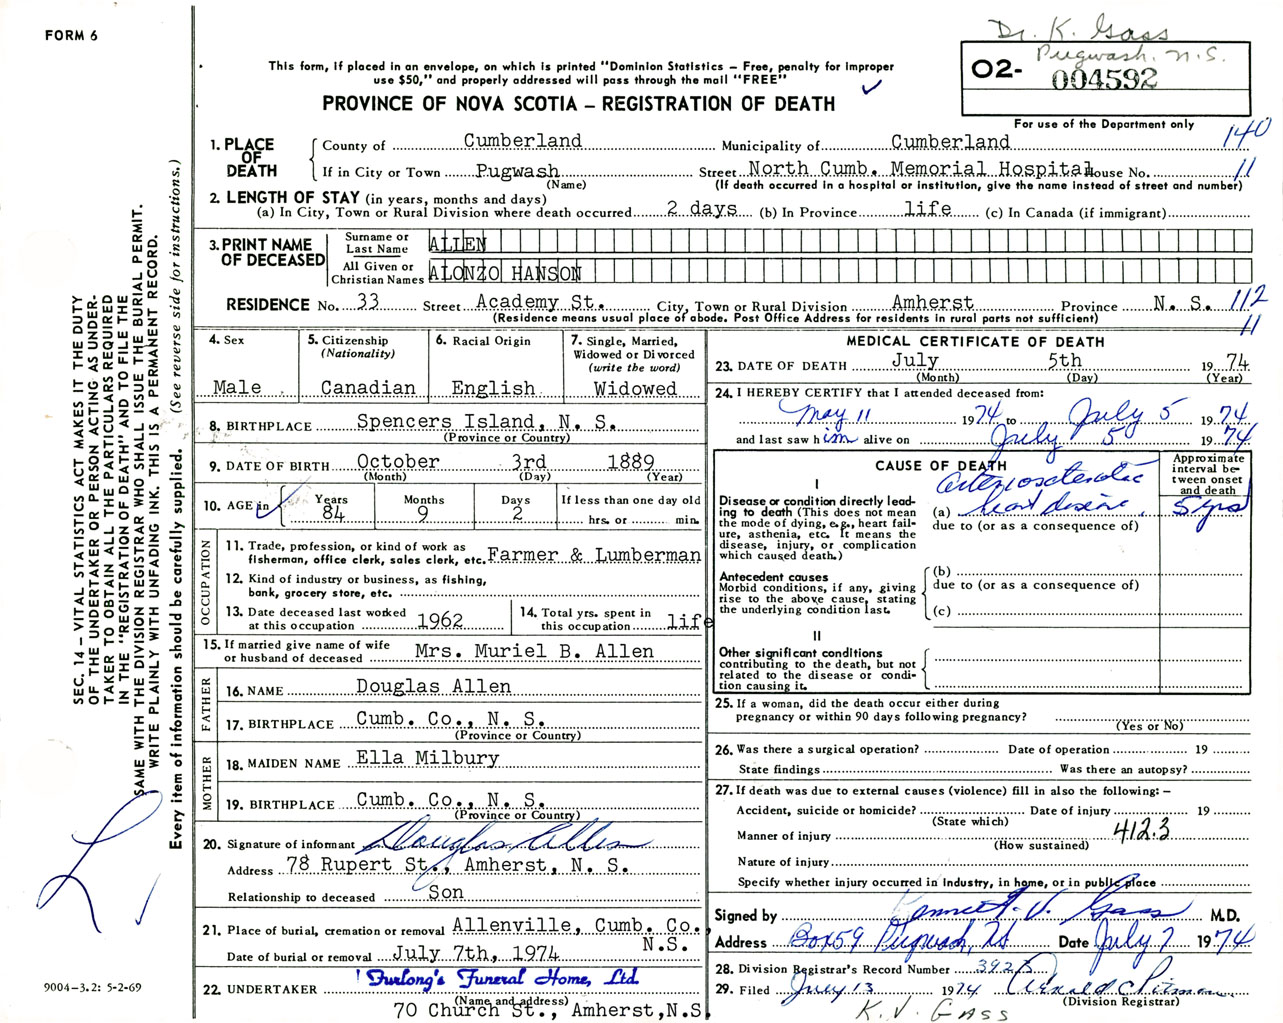 FORM 6
Dr. K. Gass
Pugwash. N.S.
O2- 004592
For use of the Department only
This form, if placed in an envelope, on which is printed "Dominion Statistics – Free, penalty for improper
use $50," and properly addressed will pass through the mail "FREE"
PROVINCE OF NOVA SCOTIA – REGISTRATION OF DEATH
140
11
1. PLACE OF DEATH
County of Cumberland Municipality of Cumberland
If in City or Town Pugwash Street North Cumb. Memorial Hospital House No.
(Name) (If death occurred in a hospital or institution, give the name instead of street and number)
2. LENGTH OF STAY (in years, months and days)
(a) In City, Town or Rural Division where death occurred 2 days (b) In Province life (c) In Canada (if immigrant)
3. PRINT NAME OF DECEASED
Surname or Last Name ALLEN
All Given or Christian Names ALONZO HANSON
RESIDENCE No. 33 Street Academy St. City, Town or Rural Division Amherst Province N. S. 112
(Residence means usual place of abode. Post Office Address for residents in rural parts not sufficient) 11
4. Sex
Male
5. Citizenship
(Nationality)
Canadian
6. Racial Origin
English
7. Single, Married,
Widowed or Divorced
(write the word)
Widowed
8. BIRTHPLACE Spencers Island, N. S.
(Province or Country)
9. DATE OF BIRTH October 3rd 1889
(Month) (Day) (Year)
10. AGE in
Years 84 Months 9 Days 2
If less than one day old
hrs. or min.
OCCUPATION
11. Trade, profession, or kind of work as
fisherman, office clerk, sales clerk, etc. Farmer & Lumberman
12. Kind of industry or business, as fishing,
bank, grocery store, etc.
13. Date deceased last worked
at this occupation 1962
14. Total yrs. spent in
this occupation life
15. If married give name of wife
or husband of deceased Mrs. Muriel B. Allen
FATHER
16. NAME Douglas Allen
17. BIRTHPLACE Cumb. Co., N. S.
(Province or Country)
MOTHER
18. MAIDEN NAME Ella Milbury
19. BIRTHPLACE Cumb. Co., N. S.
(Province or Country)
20. Signature of informant Douglas Allen
Address 78 Rupert St., Amherst, N. S.
Relationship to deceased Son
21. Place of burial, cremation or removal Allenville, Cumb. Co.,
N.S.
Date of burial or removal July 7th, 1974
22. UNDERTAKER Furlong's Funeral Home, Ltd.
(Name and address)
70 Church St., Amherst, N.S.
MEDICAL CERTIFICATE OF DEATH
23. DATE OF DEATH July 5th 1974
(Month) (Day) (Year)
24. I HEREBY CERTIFY that I attended deceased from:
May 11 1974 to July 5 1974
and last saw him alive on July 5 1974
CAUSE OF DEATH
Approximate
interval be-
tween onset
and death
I
Disease or condition directly lead-
ing to death (This does not mean
the mode of dying, e.g., heart fail-
ure, asthenia, etc. It means the
disease, injury, or complication
which caused death.)
arteriosclerotic
(a) heart disease. 5 yrs
due to (or as a consequence of)
Antecedent causes
Morbid conditions, if any, giving
rise to the above cause, stating
the underlying condition last.
(b)
due to (or as a consequence of)
(c)
II
Other significant conditions
contributing to the death, but not
related to the disease or condi-
tion causing it.
25. If a woman, did the death occur either during
pregnancy or within 90 days following pregnancy?
(Yes or No)
26. Was there a surgical operation? Date of operation 19
State findings Was there an autopsy?
27. If death was due to external causes (violence) fill in also the following: –
Accident, suicide or homicide? Date of injury 19
(State which)
412.3
Manner of injury
(How sustained)
Nature of injury
Specify whether injury occurred in Industry, in home, or in public place
Signed by Kenneth V. Gass M.D.
Address Box 59 Pugwash, NS Date July 7 1974
28. Division Registrar's Record Number 3923
29. Filed July 13 1974
(Division Registrar)
K. V. GASS
SEC. 14 – VITAL STATISTICS ACT MAKES IT THE DUTY
OF THE UNDERTAKER OR PERSON ACTING AS UNDER-
TAKER TO OBTAIN ALL THE PARTICULARS REQUIRED
IN THE "REGISTRATION OF DEATH" AND TO FILE THE
SAME WITH THE DIVISION REGISTRAR WHO SHALL ISSUE THE BURIAL PERMIT.
WRITE PLAINLY WITH UNFADING INK. THIS IS A PERMANENT RECORD.
Every item of information should be carefully supplied. (See reverse side for instructions.)
9004-3.2: 5-2-69